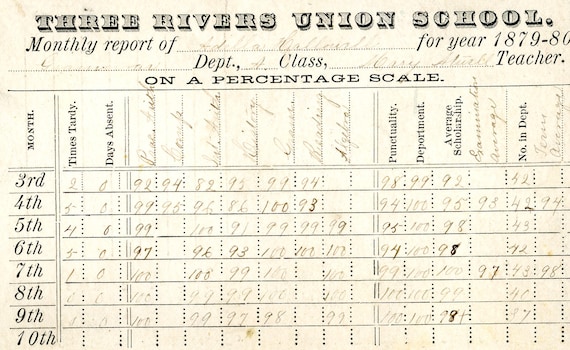 THREE RIVERS UNION SCHOOL.
Monthly report of for year 1879-80
Dept., A Class, Mary Teacher.
ON A PERCENTAGE SCALE.
MONTH. Times Tardy. Days Absent. History Gram. Reading Algebra Punctuality. Department. Average Scholarship. Examination average No. in Dept. Term Average
3rd 2 0 92 94 82 95 99 94 98 99 92 42
4th 5 0 99 95 96 86 100 93 94 100 95 93 42 94
5th 4 0 99 100 91 99 99 99 95 100 98 43
6th 5 0 97 96 93 100 100 100 94 100 98 42
7th 1 0 100 100 99 100 100 99 100 100 97 43 98
8th 0 0 100 99 99 100 100 100 100 99 40
9th 100 99 97 98 99 100 100 98+ 37
10th